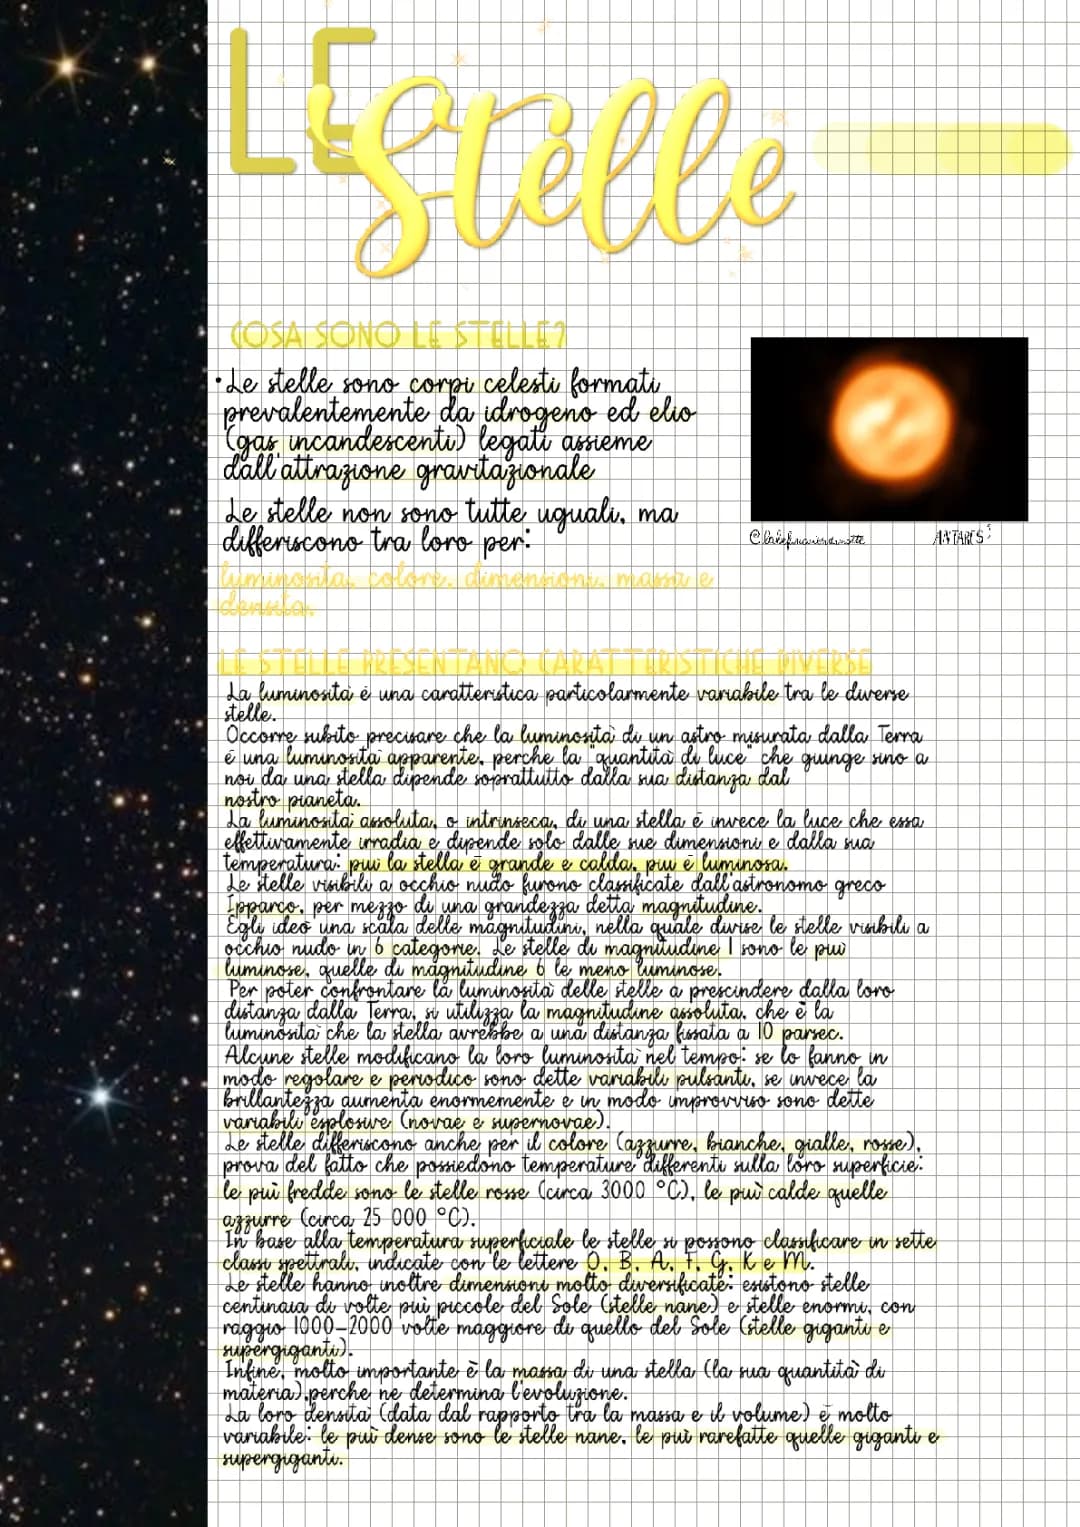 LE
Stelle
COSA SONO LE STELLE?
•Le stelle sono corpi celesti formati
prevalentemente da idrogeno ed elio
(gas incandescenti) legati assieme
dall'attrazione gravitazionale
Le stelle non sono tutte uguali, ma
differiscono tra loro per:
luminosità, colore, dimensioni, massa e
densità.
ANTARES
LE STELLE PRESENTANO CARATTERISTICHE DIVERSE
La luminosità è una caratteristica particolarmente variabile tra le diverse
stelle.
Occorre subito precisare che la luminosità di un astro misurata dalla Terra
è una luminosità apparente, perché la "quantità di luce" che giunge sino a
noi da una stella dipende soprattutto dalla sua distanza dal
nostro pianeta.
La luminosità assoluta, o intrinseca, di una stella è invece la luce che essa
effettivamente irradia e dipende solo dalle sue dimensioni e dalla sua
temperatura: più la stella è grande e calda, più è luminosa.
Le stelle visibili a occhio nudo furono classificate dall'astronomo greco
Ipparco, per mezzo di una grandezza detta magnitudine.
Egli ideò una scala delle magnitudini, nella quale divise le stelle visibili a
occhio nudo in 6 categorie. Le stelle di magnitudine 1 sono le più
luminose, quelle di magnitudine 6 le meno luminose.
Per poter confrontare la luminosità delle stelle a prescindere dalla loro
distanza dalla Terra, si utilizza la magnitudine assoluta, che è la
luminosità che la stella avrebbe a una distanza fissata a 10 parsec.
Alcune stelle modificano la loro luminosità nel tempo: se lo fanno in
modo regolare e periodico sono dette variabili pulsanti, se invece la
brillantezza aumenta enormemente e in modo improvviso sono dette
variabili esplosive (novae e supernovae).
Le stelle differiscono anche per il colore (azzurre, bianche, gialle, rosse),
prova del fatto che possiedono temperature differenti sulla loro superficie:
le più fredde sono le stelle rosse (circa 3000 °C), le più calde quelle
azzurre (circa 25 000 °C).
In base alla temperatura superficiale le stelle si possono classificare in sette
classi spettrali, indicate con le lettere O, B, A, F, G, K e M.
Le stelle hanno inoltre dimensioni molto diversificate: esistono stelle
centinaia di volte più piccole del Sole (stelle nane) e stelle enormi, con
raggio 1000-2000 volte maggiore di quello del Sole (stelle giganti e
supergiganti).
Infine, molto importante è la massa di una stella (la sua quantità di
materia),perché ne determina l'evoluzione.
La loro densità (data dal rapporto tra la massa e il volume) è molto
variabile: le più dense sono le stelle nane, le più rarefatte quelle giganti e
supergiganti.